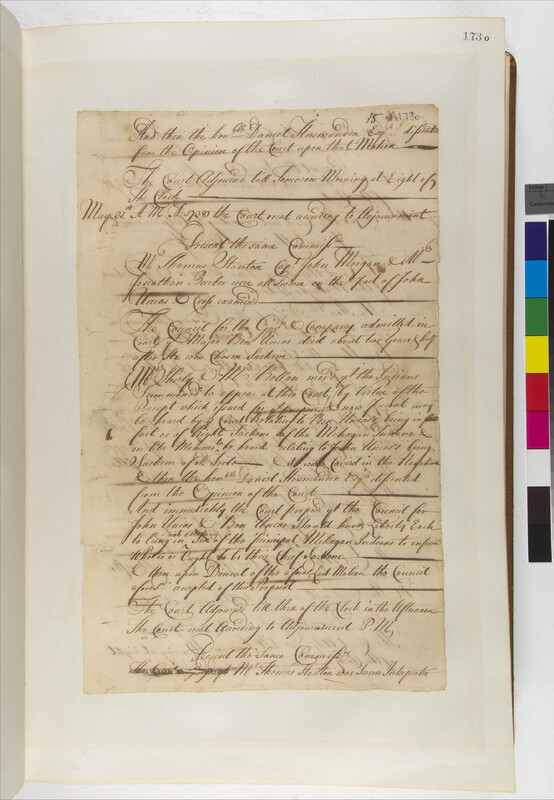 1730
15 1730
And then the hon.ble Daniel Horsmanden Esq.r dissented
from the Opinion of the Court upon that Motion
The Court Adjourn'd till Tomorrow Morning at Eight of
the Clock
May 31st A M A 1738 the Court met according to Adjournment
Present the same Commiss.rs
Mr Thomas Stanton Capt John Morgan & Mr
Jonathan Barber were all Sworn on the Part of John
Uncas & Cross examined
The Council for the Gov.r & Company admitted in
Court y.t Major Ben Uncas died about two Years & half
after He was Chosen Sachem
Mr Shirley & Mr Bollan mov'd y.t the Indians
Summoned to appear at this Court, by Virtue of the
Precept which issued & now present may
be heard by y.e Court Relating to Ben Uncas's being in
fact as of Right Sachem of the Mohegan Indians &
in like Manner to be heard relating to John Uncas's being
Sachem of Indns & it was Carried in the Negative
& then the hon.ble Daniel Horsmanden Esq.r dissented
from the Opinion of the Court
And immediately the Court propos'd y.t the Council for
John Uncas & Ben Uncas Should have Liberty Each
to bring in not exceeding Six of the Principal Mohegan Indians to inform
Who is or Ought to be their Chief Sachem
Upon Denial of the afores.d Last Motion the Council
afores.d accepted of this Proposal
The Court Adjourn'd till three of the Clock in the Afternoon
The Court met According to Adjournment P.M,
Present the Same Commiss.rs
Mr Thomas Stanton was Sworn Interpreter